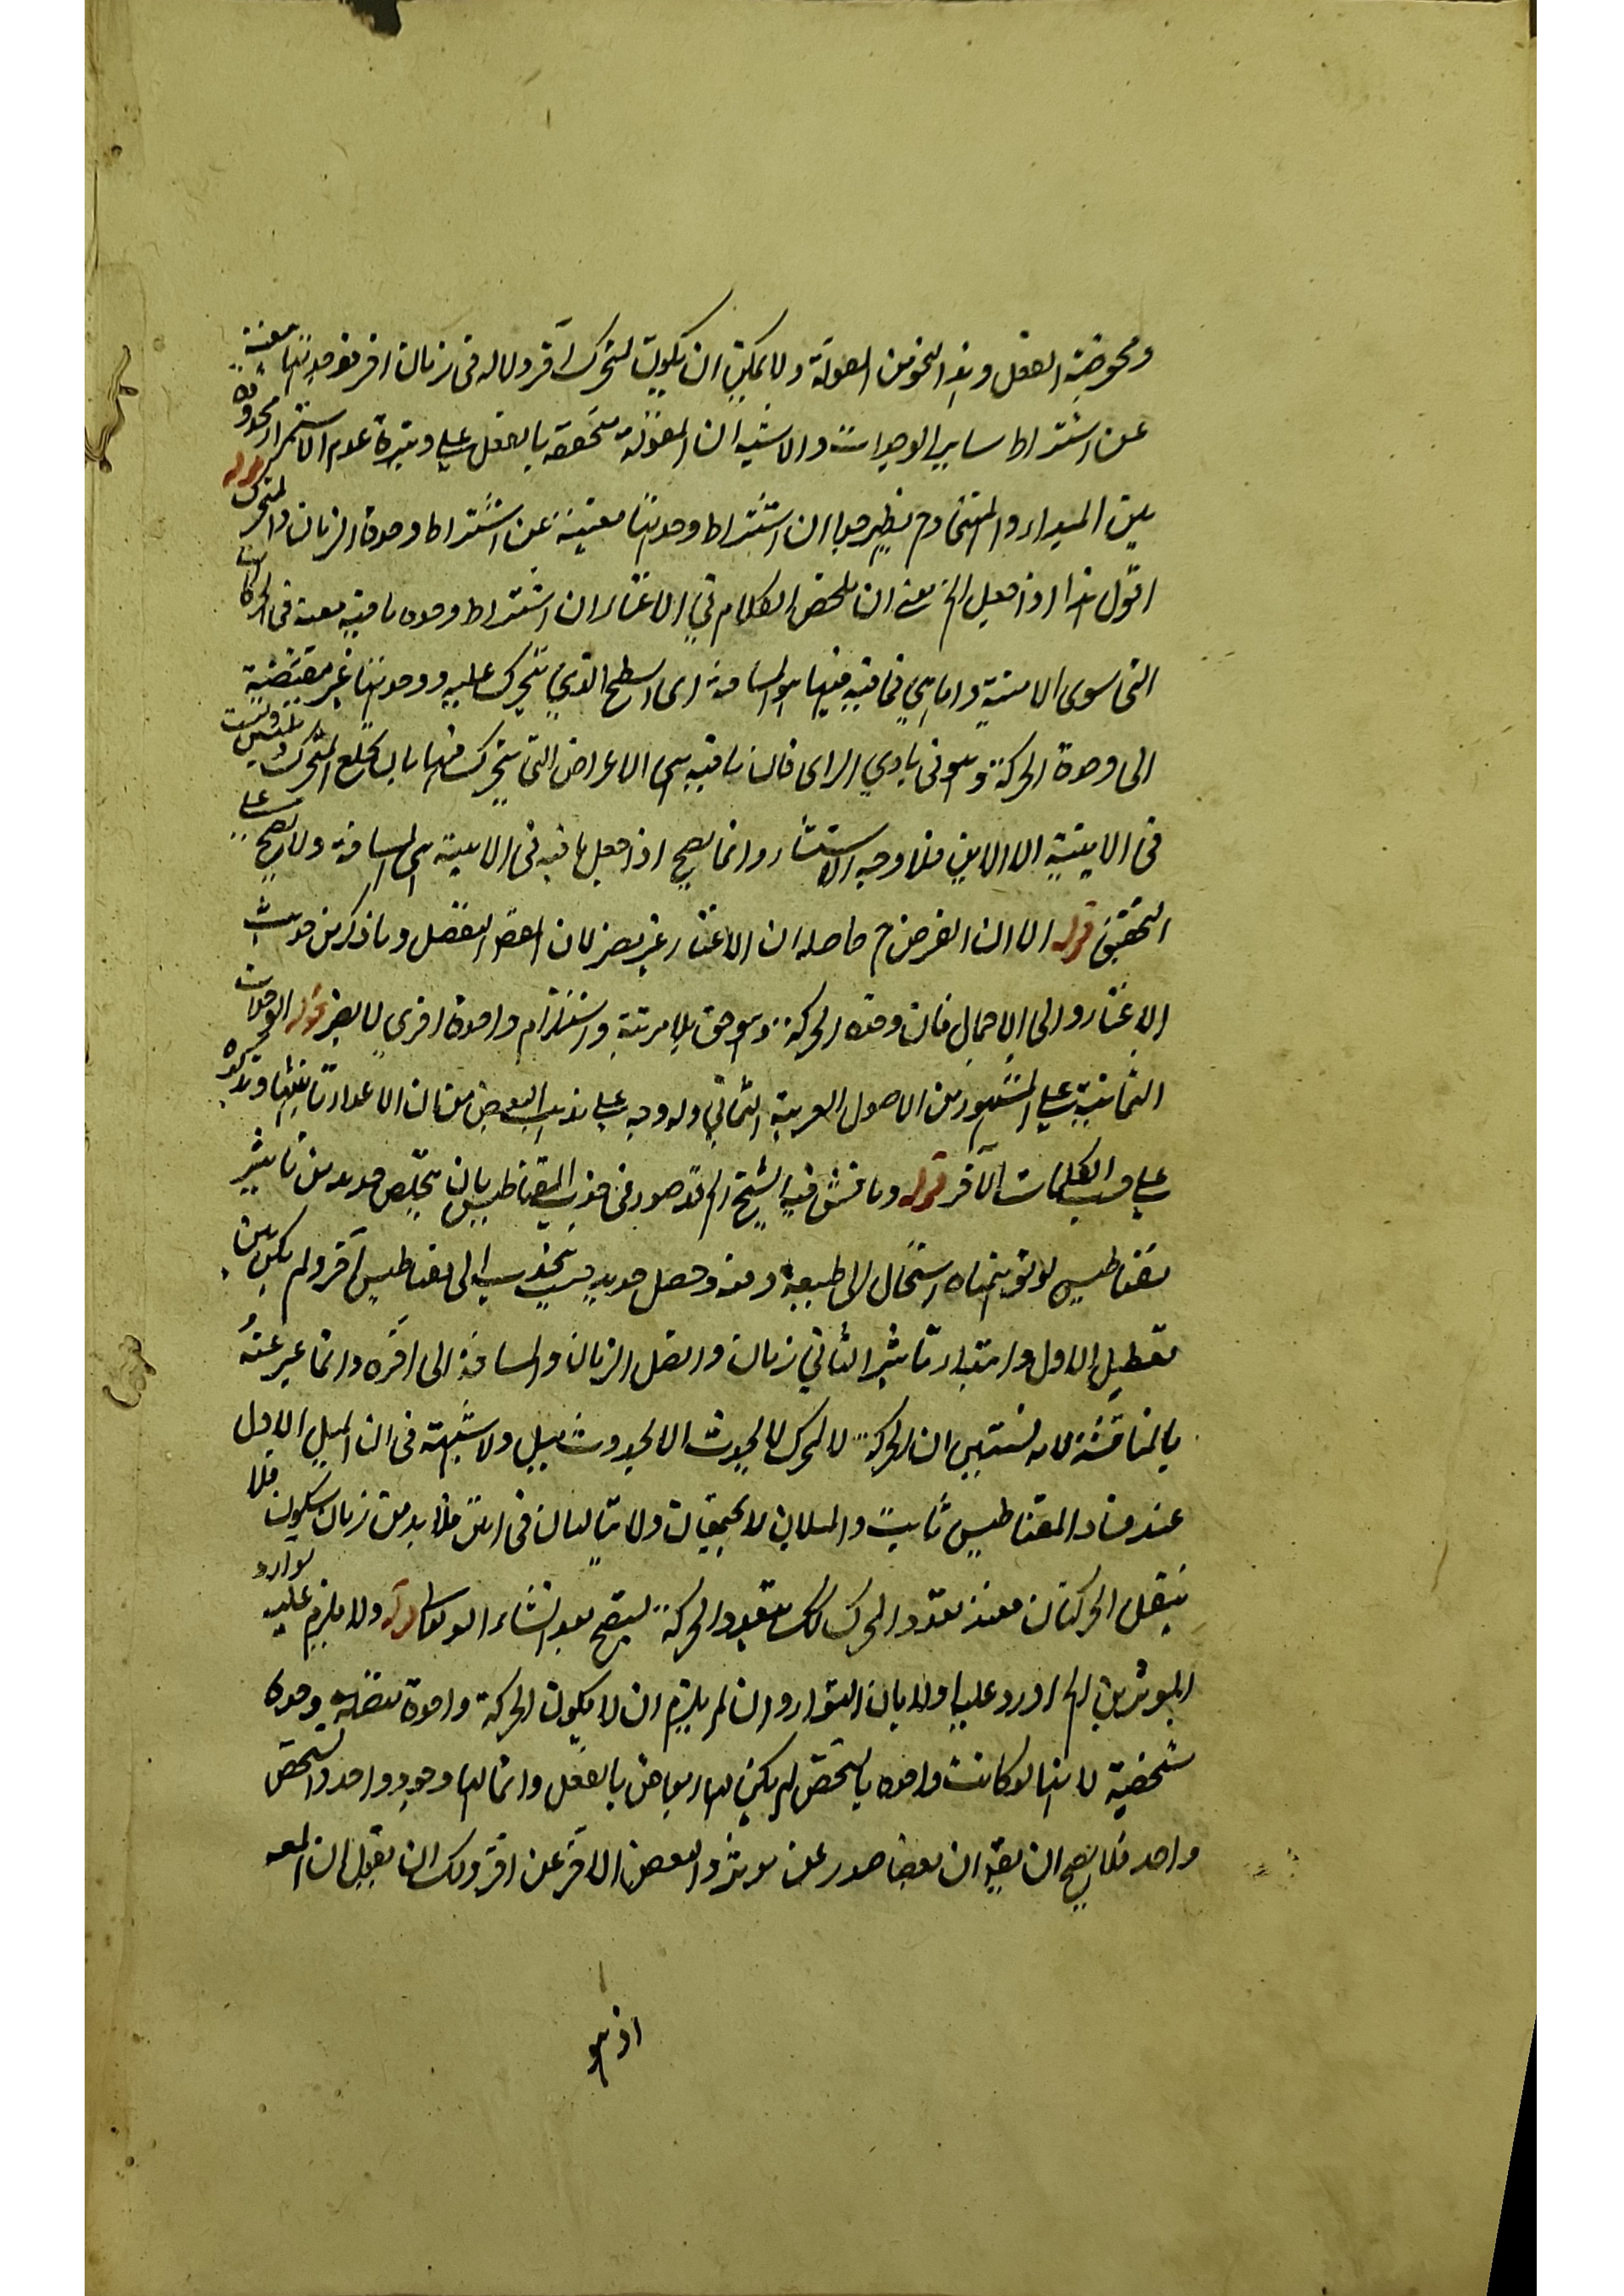 ومحوضة الفعل وهذا النحو من المقولة ولا يمكن ان يكون لمتحرك آخر ولا له فى زمان اخر فوحدتها مغنية
عن اشتراط ساير الوحدات والاشبه ان المقولة متحققة بالفعل على وتيرة عدم الاستمرار محدودة
بين المبداء والمنتهى وح يظهر جواب ان اشتراط وحدتها مغنية عن اشتراط وحدة الزمان والمتحرك قوله
اقول هذا اذا جعل الخ يعنى ان ملخص الكلام فى الاغناء ان اشتراط وحدة ما فيه معنية فى الحركات
التى سوى الاينية واما هى فما فيه فيها هو المسافة اى السطح الذى يتحرك عليه ووحدتها غير مقتضية
الى وحدة الحركة وهو فى بادى الراى فان ما فيه هى الاعراض التى يتحرك فيها بان يخلع المتحرك ويلبس وليست
فى الاينية الا الاين فلا وجه للاستثناء وانما يصح اذا جعل ما فيه فى الاينية هى المسافة ولا يصح على
التحقيق قوله الا ان الغرض ح حاصله ان الاغناء غير مضر لان المقصود التفصيل وما ذكر من حديث
الاغناء والى الاجمال فان وحدة الحركة وهو حق بلا مرية واستلزام واحدة اخرى لا يضر قوله الوحدات
الثمانية على المشهور من الاصول العربية الثمانى وله وجه على مذهب البعض من ان الاعداد تانيثها وتذكيره
على حسب الكلمات الآخر قوله وناقش فيه الشيخ الخ قد صور فى جذب المقناطيس بان تخلص حديد من تاثير
مقناطيس لو توهمناه استحال الى طبيعة دفعة وحصل حديد بحيث يجذب الى مقناطيس آخر ولم يكن بين
تعطيل الاول وابتداء تاثير الثانى زمان واتصل الزمان والمسافة الى آخره وانما عبر عنه
بالمناقشة لانه يستبين ان الحركة لا لمحرك لا يحدث الا بحدوث ميل ولا شبهة فى ان الميل الاول
عند فساد المقناطيس ثابت والميلان لا يجتمعان ولا يتاليان فى آنين فلا بد من زمان سكون فلا
يتصل الحركتان فعند تعدد المحرك كذلك تتعدد الحركة ليتضح بعد انشاء الله تعالى قوله ولا يلزم عليه توارد
المؤثرين الخ اورد عليه اولا بان التوارد وان لم يلزم ان لا يكون الحركة واحدة متصلة وحدة
شخصية لانها لو كانت واحدة بالشخص لم يكن لها ابعاض بالفعل وانما لها وجود واحد وتشخص
واحد فلا يصح ان يقال ان بعضها صدر عن مؤثر والبعض الآخر عن اخر ولك ان تقول ان المعد
اذ هو